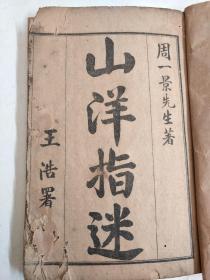 周一景先生著
山洋指迷
王浩署